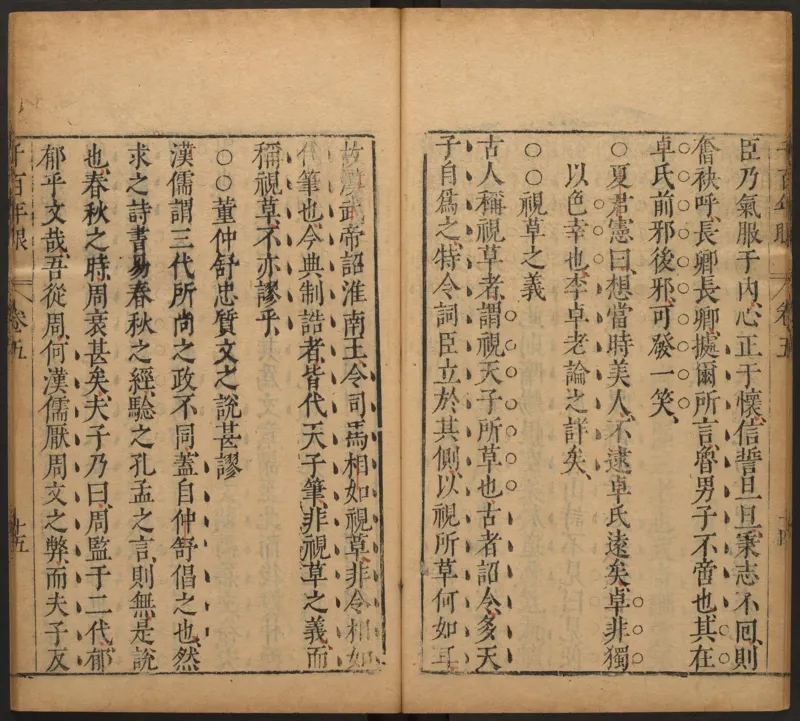 臣乃氣服于內心正于懷信誓旦旦秉志不回則
奮袂呼長卿長卿據爾所言魯男子不啻也其在
卓氏前邪後邪可發一笑
○夏君憲曰想當時美人不逮卓氏遠矣卓非獨
以色幸也李卓老論之詳矣
○○視草之義
古人稱視草者謂視天子所草也古者詔令多天
子自爲之特令詞臣立於其側以視所草何如耳
千百年眼 卷五 十四
故漢武帝詔淮南王令司馬相如視草非令相如
代筆也今典制誥者皆代天子筆非視草之義而
稱視草不亦謬乎
○○董仲舒忠質文之說甚謬
漢儒謂三代所尚之政不同蓋自仲舒倡之也然
求之詩書易春秋之經驗之孔孟之言則無是說
也春秋之時周衰甚矣夫子乃曰周監于二代郁
郁乎文哉吾從周何漢儒厭周文之弊而夫子反
千百年眼 卷五 十五